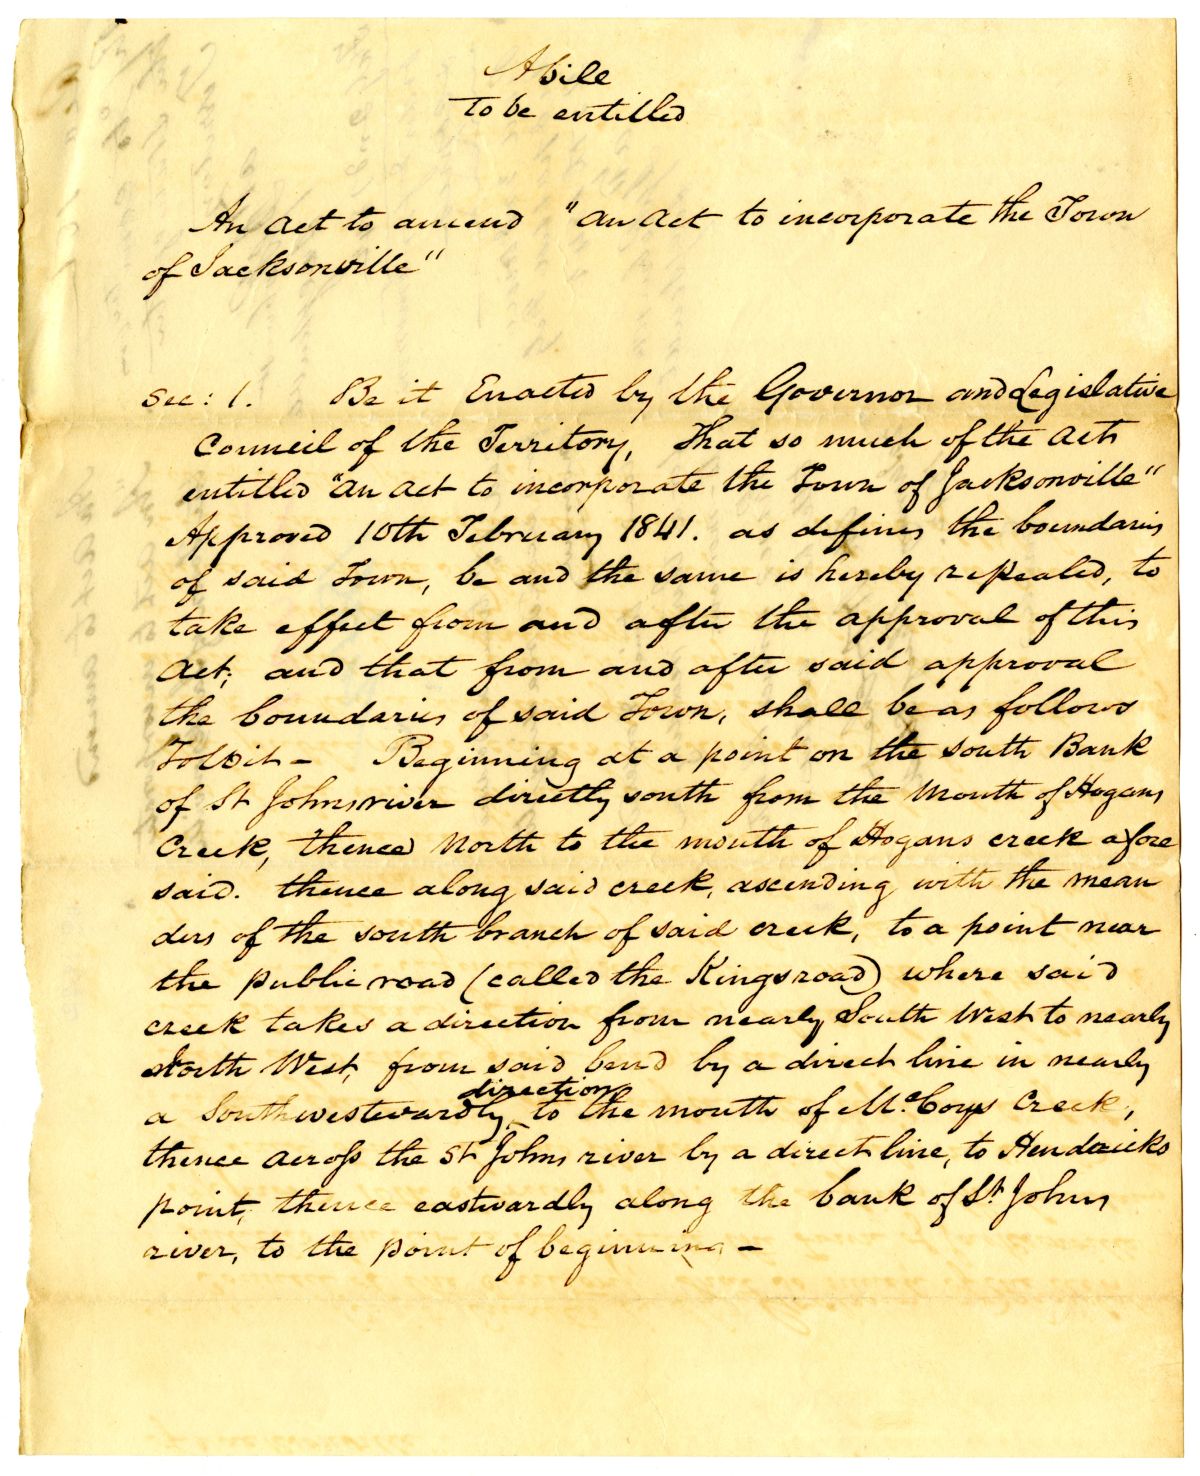 A bill
To be entitled
An Act to amend "An Act to incorporate the Town
of Jacksonville"
Sec: 1. Be it Enacted by the Governor and Legislative
Council of the Territory, That so much of the Act
entitled "An Act to incorporate the Town of Jacksonville"
Approved 10th February 1841. as defines the boundaries
of said Town, be and the same is hereby repealed, to
take effect from and after the approval of this
Act; and that from and after said approval
the boundaries of said Town, shall be as follows
To Wit - Beginning at a point on the south Bank
of St Johns river directly south from the Mouth of Hogans
Creek, thence North to the mouth of Hogans creek afore
said. thence along said creek, ascending with the mean
ders of the south branch of said creek, to a point near
the public road (called the Kings road) where said
creek takes a direction from nearly South West to nearly
North West, from said bend by a direct line in nearly
direction
a Southwestwardly, to the mouth of McCoys Creek,
thence across the St Johns river by a direct line, to Hendricks
point, thence eastwardly along the bank of St Johns
river, to the point of beginning -